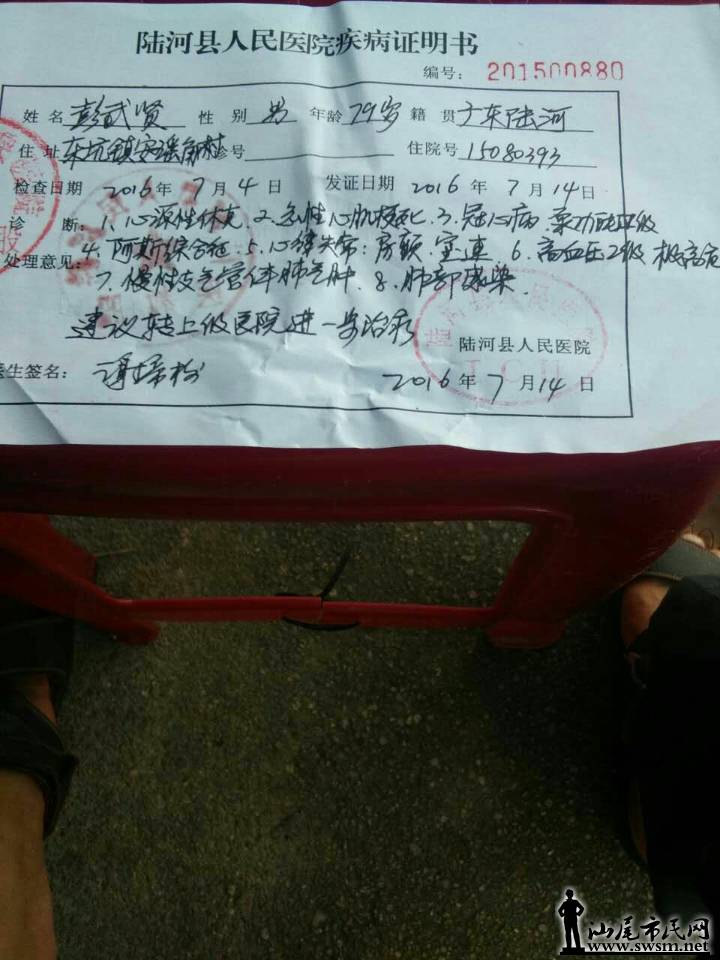 陆河县人民医院疾病证明书
编号: 201500880
姓名 彭武贤 性别 男 年龄 79岁 籍贯 广东陆河
住址 东坑镇 诊号 住院号 15080393
检查日期 2016年7月4日 发证日期 2016年7月14日
诊断: 1. 心源性休克 2. 急性心肌梗死 3. 冠心病 级
处理意见: 4. 阿斯综合征 5. 心律失常: 房颤. 室速 6. 高血压2级 极高危
7. 慢性支气管炎伴肺气肿 8. 肺部感染
建议转上级医院进一步治疗
陆河县人民医院
生签名:
2016年7月14日
汕尾市民网
www.swsm.net